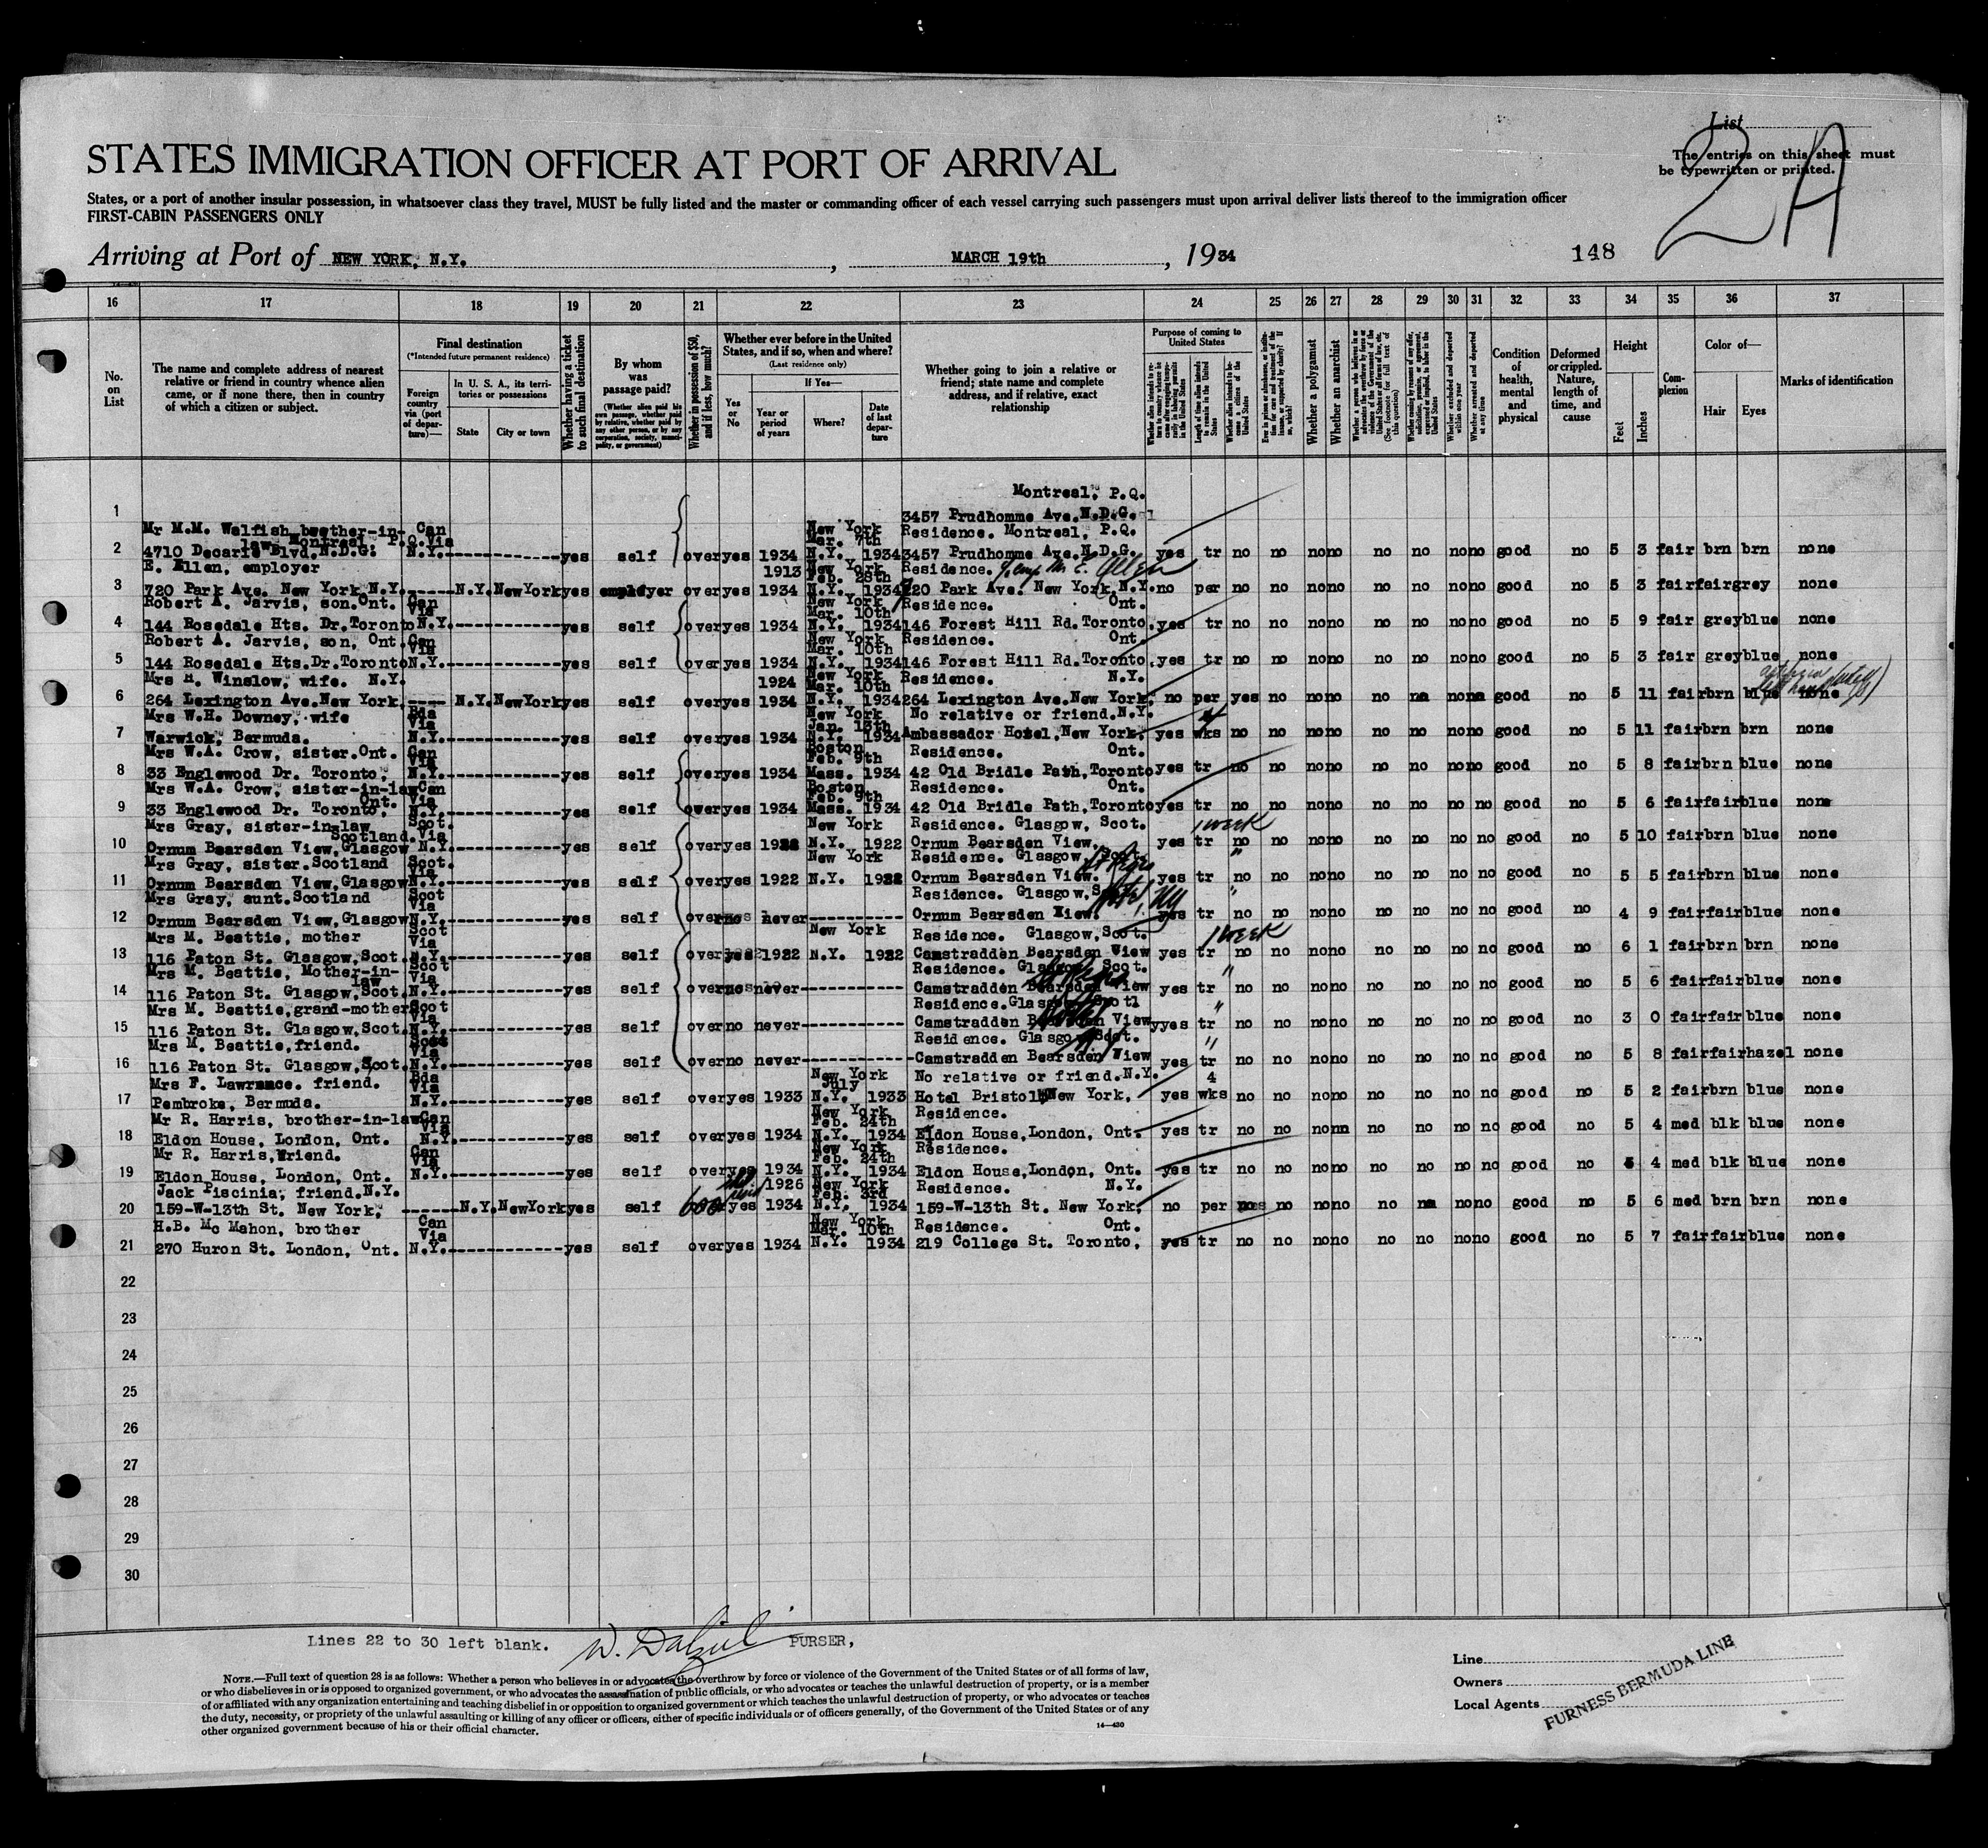 List
2A
The entries on this sheet must
be typewritten or printed.
STATES IMMIGRATION OFFICER AT PORT OF ARRIVAL
States, or a port of another insular possession, in whatsoever class they travel, MUST be fully listed and the master or commanding officer of each vessel carrying such passengers must upon arrival deliver lists thereof to the immigration officer
FIRST-CABIN PASSENGERS ONLY
Arriving at Port of NEW YORK, N.Y. , MARCH 19th , 1934 148
16 17 18 19 20 21 22 23 24 25 26 27 28 29 30 31 32 33 34 35 36 37
No. on List
The name and complete address of nearest
relative or friend in country whence alien
came, or if none there, then in country
of which a citizen or subject.
Final destination
(*Intended future permanent residence)
Foreign country via (port of departure)—
In U. S. A., its territories or possessions
State City or town
Whether having a ticket to such final destination
By whom was passage paid?
(Whether alien paid his own passage, whether paid by relative, whether paid by any other person, or by any corporation, society, municipality, or government)
Whether in possession of $50, and if less, how much?
Whether ever before in the United
States, and if so, when and where?
(Last residence only)
Yes or No
If Yes—
Year or period of years
Where?
Date of last departure
Whether going to join a relative or
friend; state name and complete
address, and if relative, exact
relationship
Purpose of coming to United States
Length of time alien intends to remain in the United States
Whether alien intends to become a citizen of the United States
Whether a polygamist
Whether an anarchist
Whether excluded and deported within one year
Whether arrested and deported at any time
Condition of health, mental and physical
Deformed or crippled. Nature, length of time, and cause
Height
Feet Inches
Complexion
Color of—
Hair Eyes
Marks of identification
Montreal, P.Q.
1 3457 Prudhomme Ave.N.D.G.
Mr M.M. Walfish brother-in-law Montreal P.Q. Can Via New York Mar. 7th Residence. Montreal, P.Q.
2 4710 Decarie Blvd.N.D.G. N.Y. yes self over yes 1934 N.Y. 1934 3457 Prudhomme Ave.N.D.G. yes tr no no no no no no no no good no 5 3 fair brn brn none
E. Ellen, employer 1913 New York Feb. 28th Residence.
3 720 Park Ave. New York N.Y. N.Y. New York yes employer over yes 1934 N.Y. 1934 720 Park Ave. New York, N.Y. no per no no no no no no no no good no 5 3 fair fair grey none
Robert A. Jarvis, son.Ont. Can Via New York Mar. 10th Residence. Ont.
4 144 Rosedale Hts. Dr.Toronto N.Y. yes self over yes 1934 N.Y. 1934 146 Forest Hill Rd.Toronto. yes tr no no no no no no no no good no 5 9 fair grey blue none
Robert A. Jarvis, son, Ont. Can Via New York Mar. 10th Residence. Ont.
5 144 Rosedale Hts.Dr.Toronto N.Y. yes self over yes 1934 N.Y. 1934 146 Forest Hill Rd.Toronto. yes tr no no no no no no no no good no 5 3 fair grey blue none
Mrs H. Winslow, wife. N.Y. 1924 New York Mar. 10th Residence. N.Y.
6 264 Lexington Ave.New York. N.Y. New York yes self over yes 1934 N.Y. 1934 264 Lexington Ave.New York, no per yes no no no no na no na good no 5 11 fair brn blue none
Mrs W.H. Downey, wife Bda Via New York Jan. 13th No relative or friend.N.Y. 4
7 Warwick, Bermuda. N.Y. yes self over yes 1934 N.Y. 1934 Ambassador Hotel, New York, yes wks no no no no no no no no good no 5 11 fair brn brn none
Mrs W.A. Crow, sister.Ont. Can Via Boston Feb. 9th Residence. Ont.
8 33 Englewood Dr. Toronto, N.Y. yes self over yes 1934 Mass. 1934 42 Old Bridle Path, Toronto yes tr no no no no no no no no good no 5 8 fair brn blue none
Mrs W.A. Crow, sister-in-law Ont. Can Via Boston Feb. 9th Residence. Ont.
9 33 Englewood Dr. Toronto, N.Y. yes self over yes 1934 Mass. 1934 42 Old Bridle Path, Toronto yes tr no no no no no no no no good no 5 6 fair fair blue none
Mrs Gray, sister-in-law Scotland. Scot. Via New York Residence. Glasgow, Scot. 1 week
10 Ornum Bearsden View, Glasgow N.Y. yes self over yes 1922 N.Y. 1922 Ornum Bearsden View. yes tr no no no no no no no no good no 5 10 fair brn blue none
Mrs Gray, sister.Scotland Scot. Via New York Residence. Glasgow, Scot. "
11 Ornum Bearsden View,Glasgow N.Y. yes self over yes 1922 N.Y. 1922 Ornum Bearsden View. yes tr no no no no no no no no good no 5 5 fair brn blue none
Mrs Gray, aunt.Scotland Scot Via Residence. Glasgow, "
12 Ornum Bearsden View,Glasgow N.Y. yes self over no never Ornum Bearsden View. yes tr no no no no no no no no good no 4 9 fair fair blue none
Mrs M. Beattie, mother Scot Via New York Residence. Glasgow, Scot. 1 week
13 116 Paton St. Glasgow,Scot. N.Y. yes self over yes 1922 N.Y. 1922 Camstradden Bearsden View yes tr no no no no no no no no good no 6 1 fair brn brn none
Mrs M. Beattie, Mother-in-law Scot Via Residence. Glasgow Scot. "
14 116 Paton St. Glasgow,Scot. N.Y. yes self over no never Camstradden Bearsden View yes tr no no no no no no no no good no 5 6 fair fair blue none
Mrs M. Beattie,grand-mother Scot Via Residence.Glasgow Scotl "
15 116 Paton St. Glasgow,Scot. N.Y. yes self over no never Camstradden Bearsden View yyes tr no no no no no no no no good no 3 0 fair fair blue none
Mrs M. Beattie,friend. Scot Via Residence. Glasgow Scot. "
16 116 Paton St. Glasgow,Scot. N.Y. yes self over no never Camstradden Bearsden View yes tr no no no no no no no no good no 5 8 fair fair hazel none
Mrs F. Lawrance. friend. Bda Via New York July No relative or friend.N.Y. 4
17 Pembroke, Bermuda. N.Y. yes self over yes 1933 N.Y. 1933 Hotel Bristol New York, yes wks no no no no no no no no good no 5 2 fair brn blue none
Mr R. Harris, brother-in-law Can Via New York Feb. 24th Residence.
18 Eldon House, London, Ont. N.Y. yes self over yes 1934 N.Y. 1934 Eldon House,London, Ont. yes tr no no no nn no no no no good no 5 4 med blk blue none
Mr R. Harris,friend. Can Via New York Feb. 24th Residence.
19 Eldon House, London, Ont. N.Y. yes self over yes 1934 N.Y. 1934 Eldon House,London, Ont. yes tr no no no no no no no no good no 5 4 med blk blue none
Jack Piscinia, friend.N.Y. 1926 New York Feb. 3rd Residence. N.Y.
20 159-W-13th St. New York, N.Y. New York yes self yes 1934 N.Y. 1934 159-W-13th St. New York, no per no no no no na no no good no 5 6 med brn brn none
H.B. Mc Mahon, brother Can Via New York Mar. 10th Residence. Ont.
21 270 Huron St. London, Ont. N.Y. yes self over yes 1934 N.Y. 1934 219 College St. Toronto, yes tr no no no no no no no no good no 5 7 fair fair blue none
22
23
24
25
26
27
28
29
30
Lines 22 to 30 left blank. W. Dalziel PURSER,
NOTE.—Full text of question 28 is as follows: Whether a person who believes in or advocates the overthrow by force or violence of the Government of the United States or of all forms of law,
or who disbelieves in or is opposed to organized government, or who advocates the assassination of public officials, or who advocates or teaches the unlawful destruction of property, or is a member
of or affiliated with any organization entertaining and teaching disbelief in or opposition to organized government or which teaches the unlawful destruction of property, or who advocates or teaches
the duty, necessity, or propriety of the unlawful assaulting or killing of any officer or officers, either of specific individuals or of officers generally, of the Government of the United States or of any
other organized government because of his or their official character.
14—430
Line
Owners
Local Agents
FURNESS BERMUDA LINE